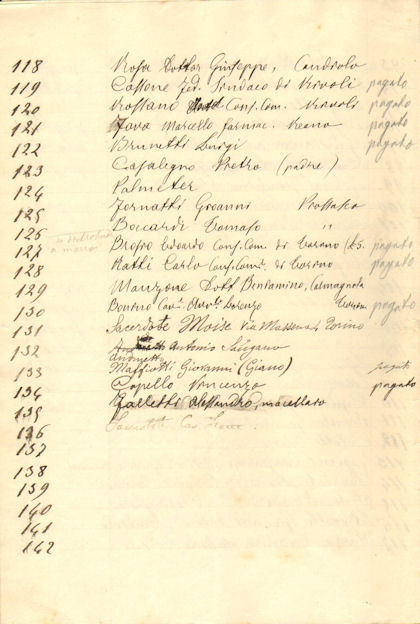 118 Rosa Dottor Giuseppe, Candiolo
119 Cassone Sindaco di pagato
120 Rossano Cons. Com. pagato
121 Fava Marcello farmac. Reano pagato
122 Brunetti Luigi pagato
123 Casalegno Pietro (padre)
124 Palmeter
125 Fornatti Giovanni
126 Boccardi Tomaso "
127 Edoardo Cons. Com. di pagato
a mano
128 Ratti Carlo Cons. Com. di Torino pagato
129 Manzone Dott Beniamino, Carmagnola
130 Cav. Avv. Lorenzo Torino pagato
131 Sacerdote Moise Via Massena, Torino
132 Antonio
133 Giovanni (Giano) pagato
134 Capello Vincenzo pagato
135 Galletti Alessandro, macellaio
136 Cav.
137
138
139
140
141
142